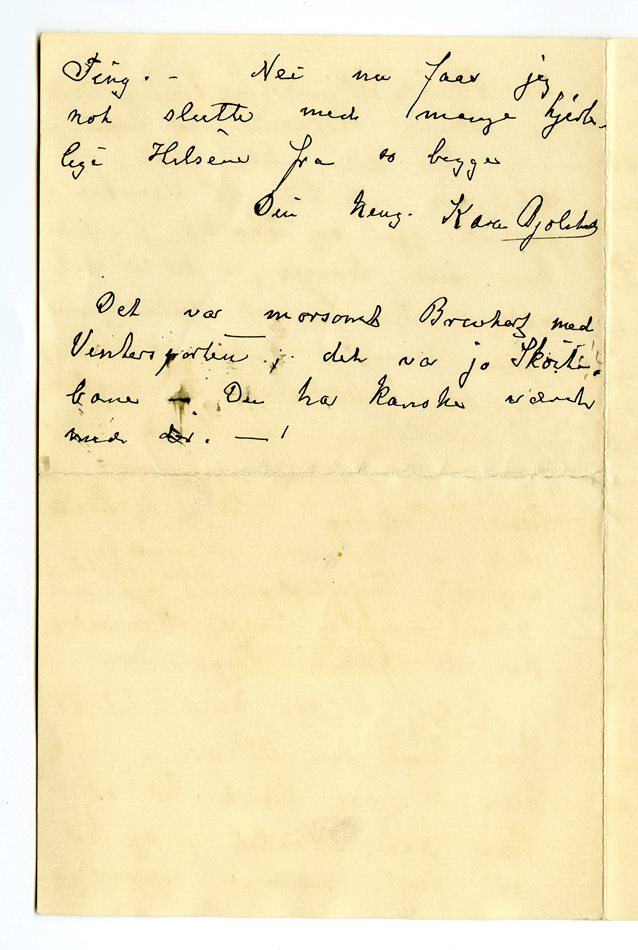 Ting. - Nei nu faar jeg
nok slutte med mange hjerte-
lige Hilsener fra os begge
Din heng. Kara
Det var morsomt Brevkort med
Vintersporten, det var jo Skøite,
bane — Du har kanske været
med der. — !